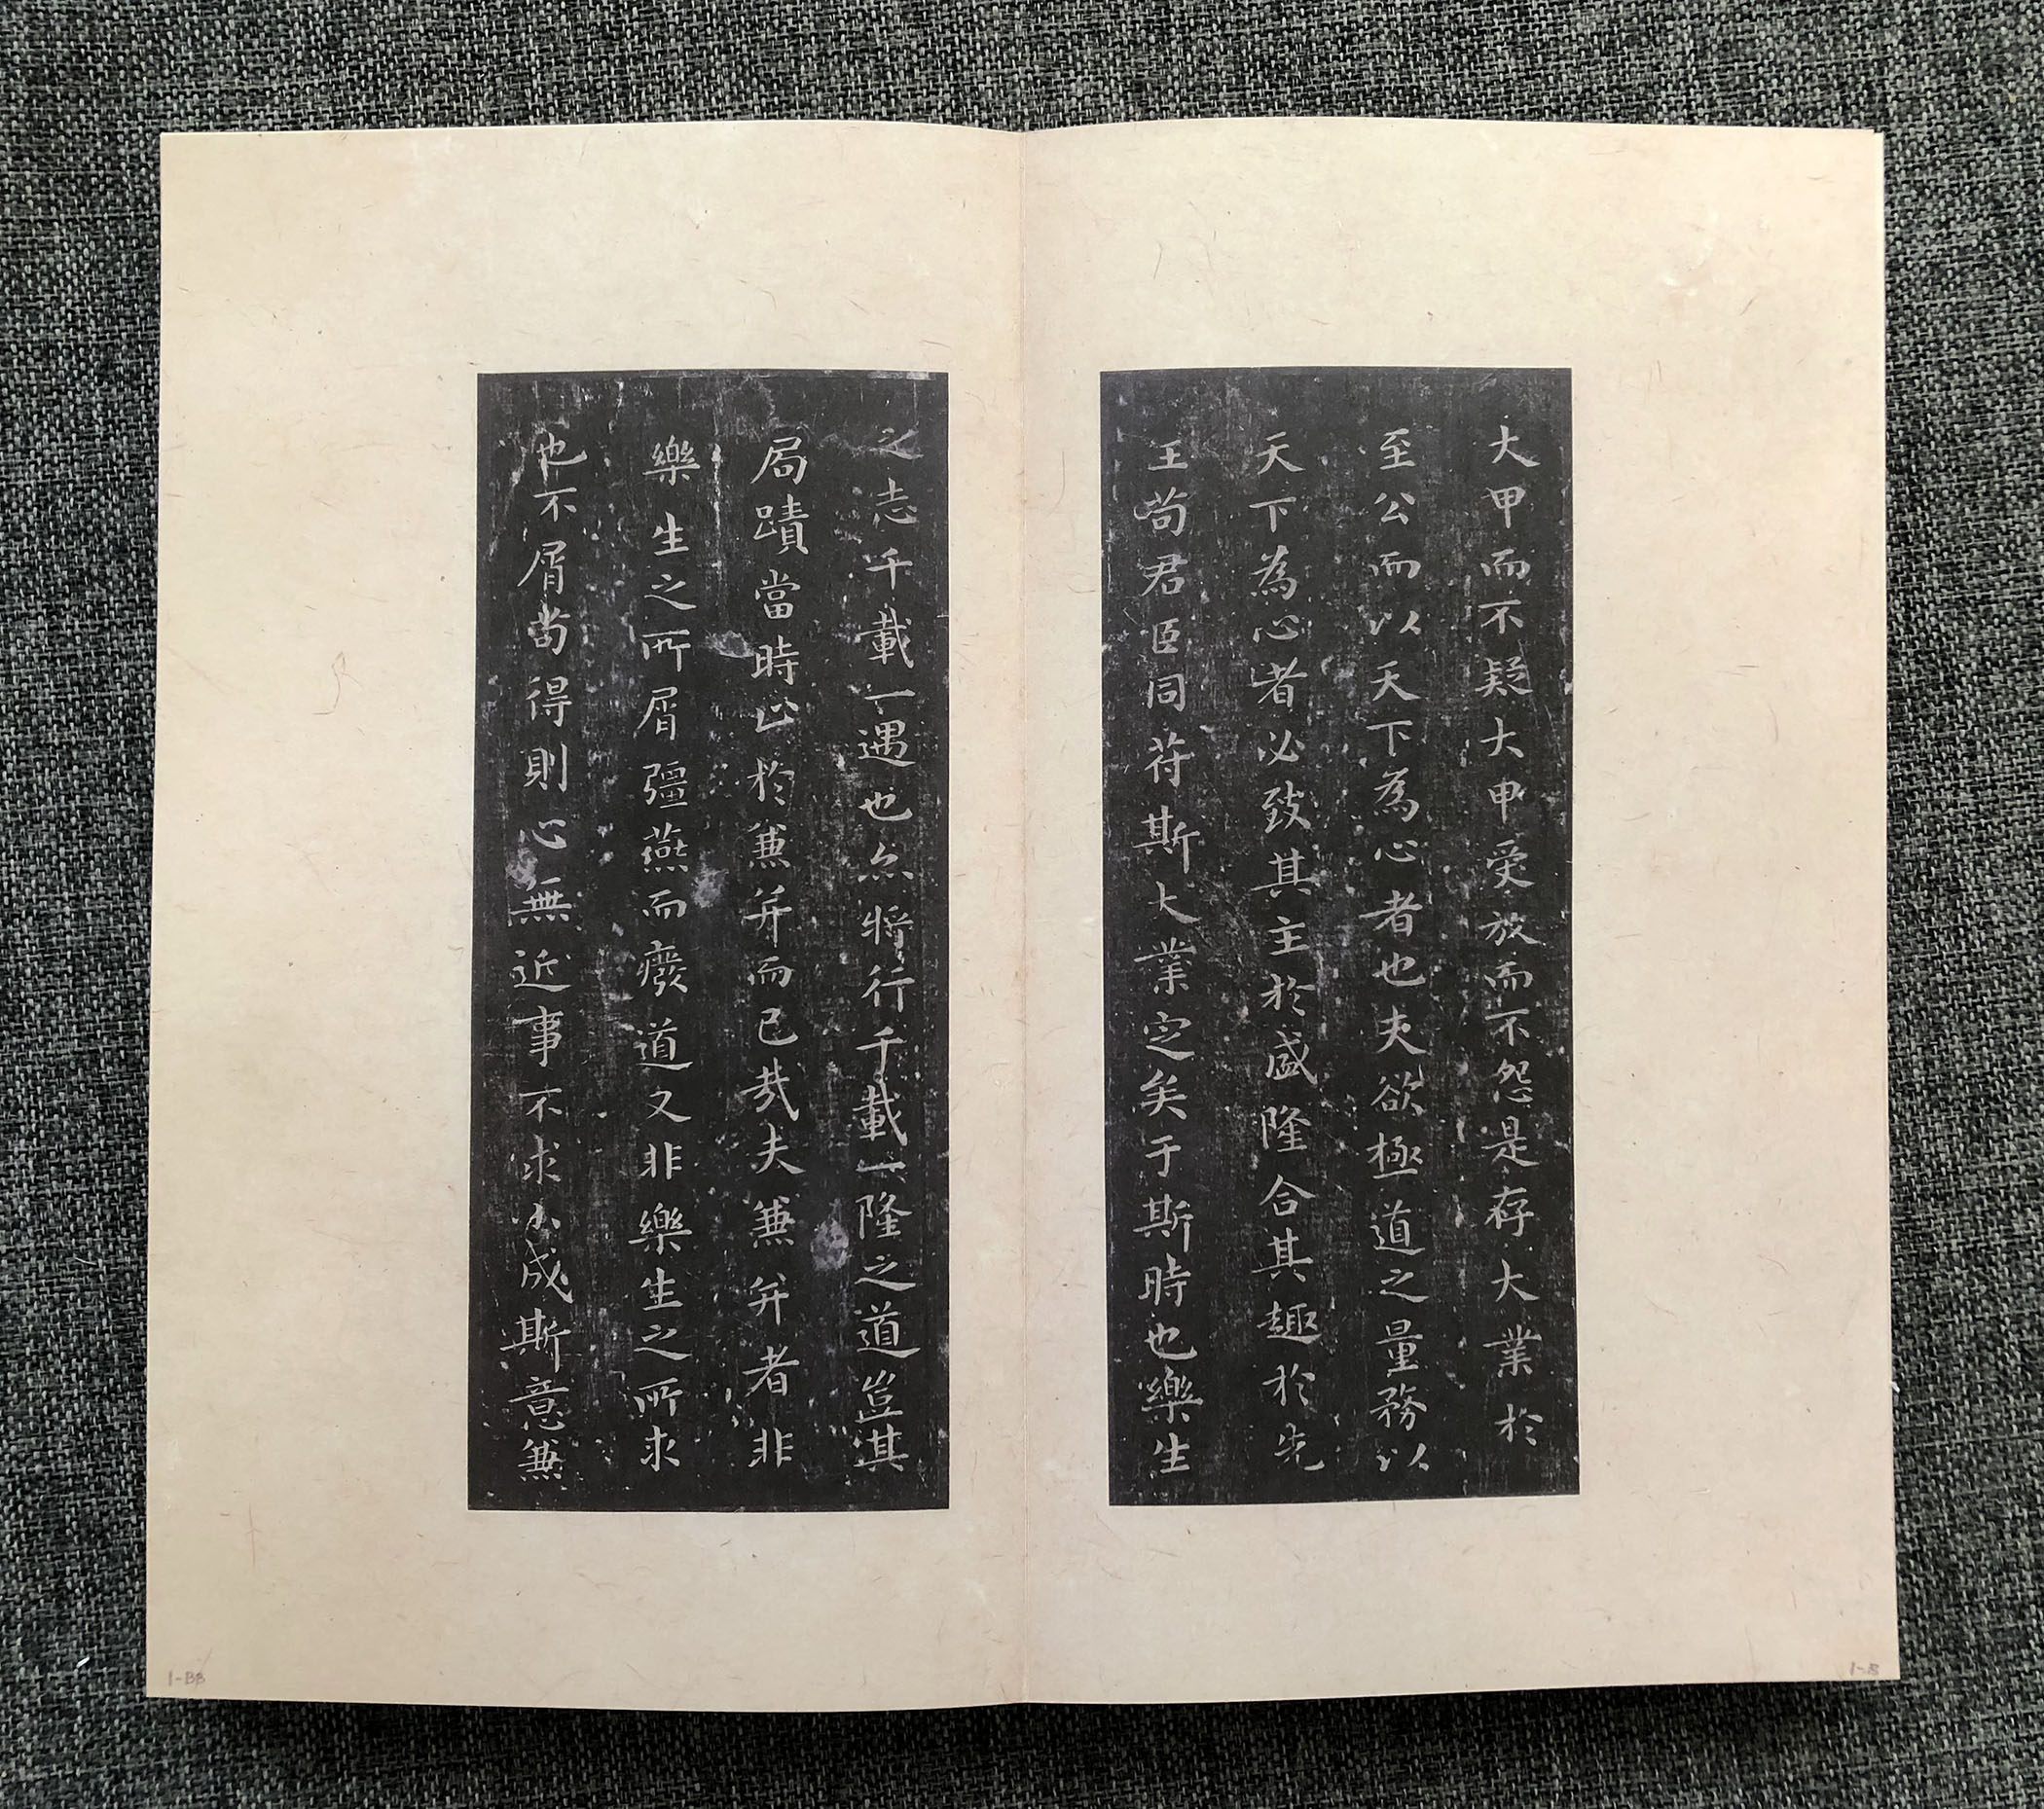 大甲而不疑大甲受放而不怨是存大業於
至公而以天下為心者也夫欲極道之量務以
天下為心者必致其主於盛隆合其趣於先
王苟君臣同苻斯大業定矣于斯時也樂生
之志千載一遇也亦將行千載一隆之道豈其
局蹟當時止於兼并而已哉夫兼并者非
樂生之所屑彊燕而癈道又非樂生之所求
也不屑苟得則心無近事不求小成斯意兼
1-BB